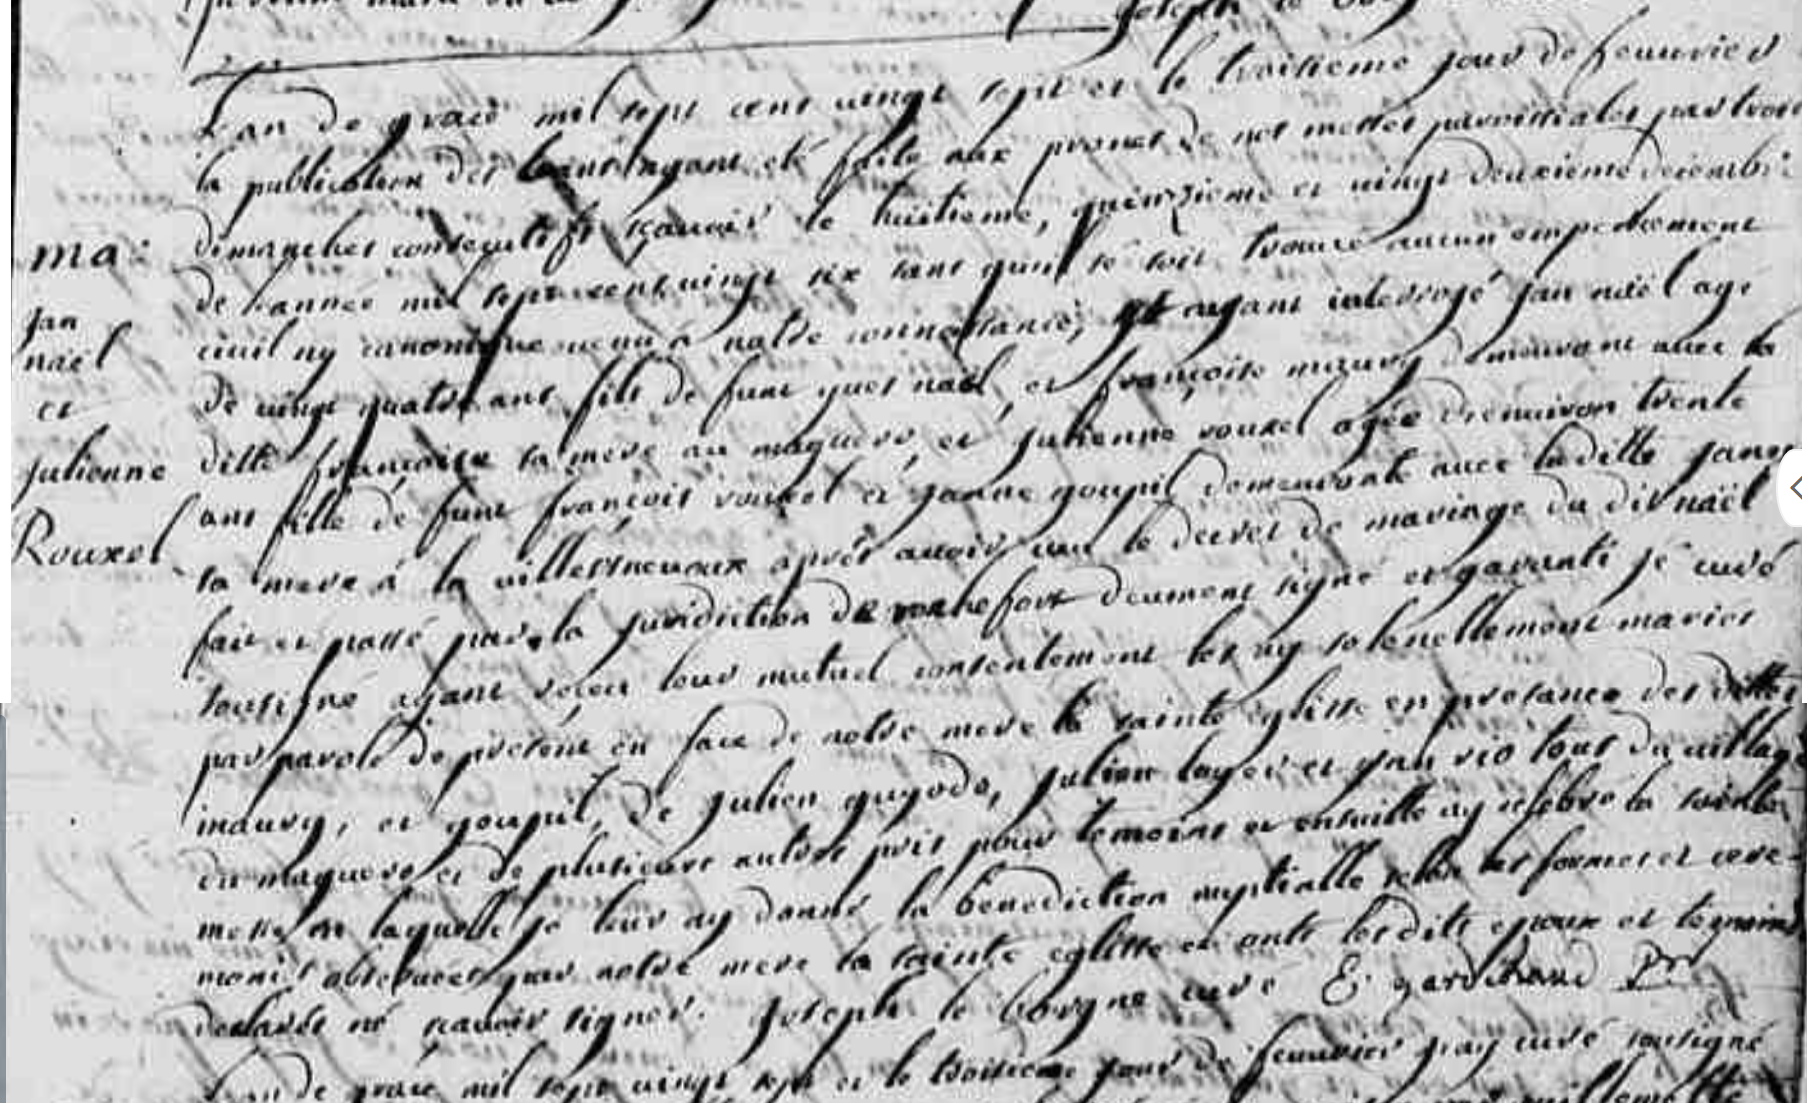 Joseph le Borgne
L'an de grace mil sept cent vingt sept et le troisieme jour de feuvrier
la publication des bans ayant eté faite aux prones de nos messes parroissiales par trois
dimanches consecutifs sçavoir le huitieme, quinzieme et vingt deuxieme decembre
ma:
de l'annee mil sept cent vingt six sans quil se soit trouvé aucun empechement
jan
civil ny canonique venu à notre connoissance, et ayant interrogé jan naël age
naël
de vingt quatre ans fils de funt yues naël, et françoise maury demeurant avec la
et
ditte françoise sa mere au maguero, et julienne rouxel agée d'enuiron trente
julienne
ans fille de funt françois rouxel et janne goupil demeurante avec laditte janne
Rouxel
sa mere à la villesneuvaux après avoir vu le decret de mariage du dit naël
fait et passé par la juridiction de rochefort deument signé et garanti je curé
soussigné ayant reçeu leur mutuel consentement les ay solenellement mariés
par parole de present en face de notre mere la sainte eglisse en presance des dittes
maury, et goupil, de julien guyodo, julien layec et jan rio tous du village
du maguero et de plusieurs autres pris pour temoins et ensuitte ay celebré la sainte
messe en laquelle je leur ay donné la benediction nuptialle selon les formes et cere-
monies observees par notre mere la sainte eglisse et onts lesdits epoux et temoins
declarés ne scavoir signer. Joseph le borgne curé
L'an de grace mil sept vingt sept et le troisieme jour de feuvrier j'ay curé sousigné